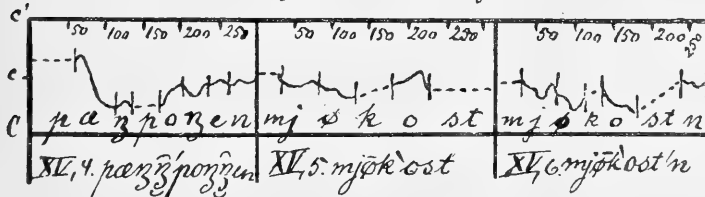 c'
50 100 150 200 250 50 100 150 200 250 50 100 150 200 250
c
C p æ ʒ p o ʒ e n m j ø k o st m j ø k o st n
XV, 5. mjøk`ost XV, 6. mjøk`ost'n